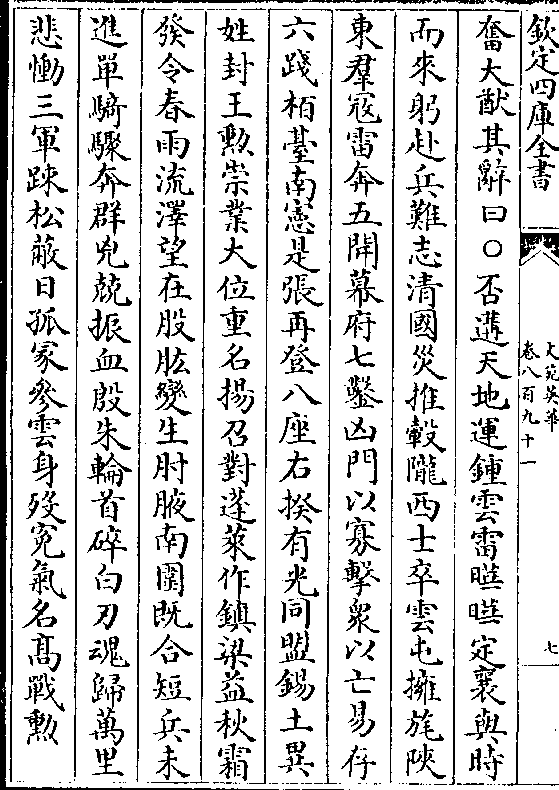 欽定四庫全書
文苑英華
卷八百九十一
七
奮大猷其辭曰○否遘天地運鍾雲雷曀曀定襄與時
而來躬赴兵難志清國災推轂隴西士卒雲屯擁旄陜
東羣宼雷奔五開幕府七鑿凶門以寡擊衆以亡易存
六踐栢臺南憲是張再登八座右揆有光同盟錫土異
姓封王勲崇業大位重名揚召對蓬萊作鎮梁益秋霜
發令春雨流澤望在股肱變生肘腋南圍既合短兵未
進單騎驟奔群兇兢振血殷朱輪首碎白刃魂歸萬里
悲慟三軍踈松蔽日孤冢參雲身歿寃氣名髙戰勲